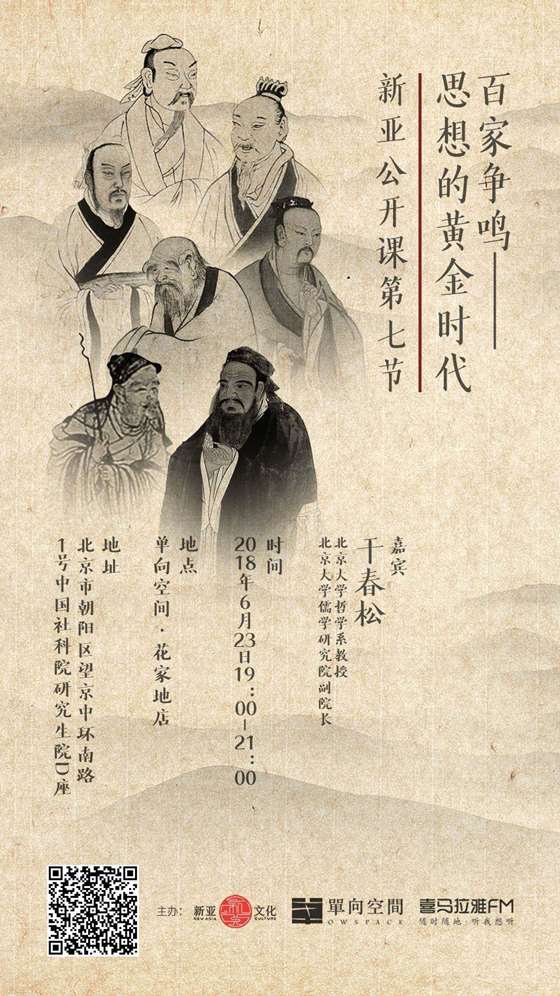 百家争鸣——
思想的黄金时代
新亚公开课第七节
嘉宾
干春松
北京大学哲学系教授
北京大学儒学研究院副院长
时间
2018年6月23日19：00—21：00
地点
单向空间·花家地店
地址
北京市朝阳区望京中环南路
1号中国社科院研究生院D座
主办：
新亚
NEW ASIA
文化
CULTURE
單向空間
OWSPACE
喜马拉雅FM
随时随地·听我想听